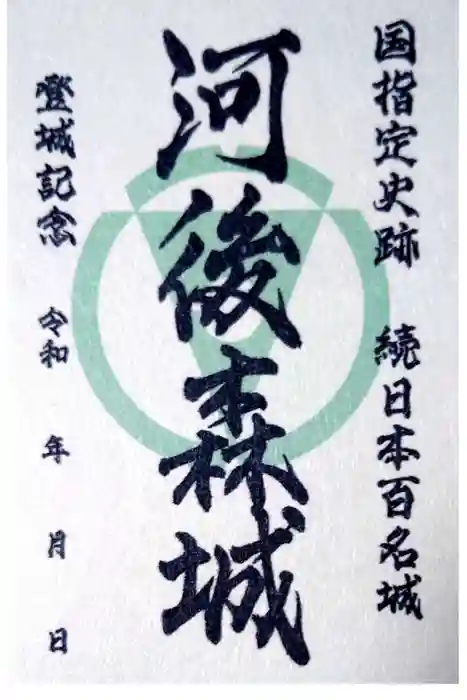 国指定史跡 続日本百名城
河後森城
登城記念 令和 年 月 日